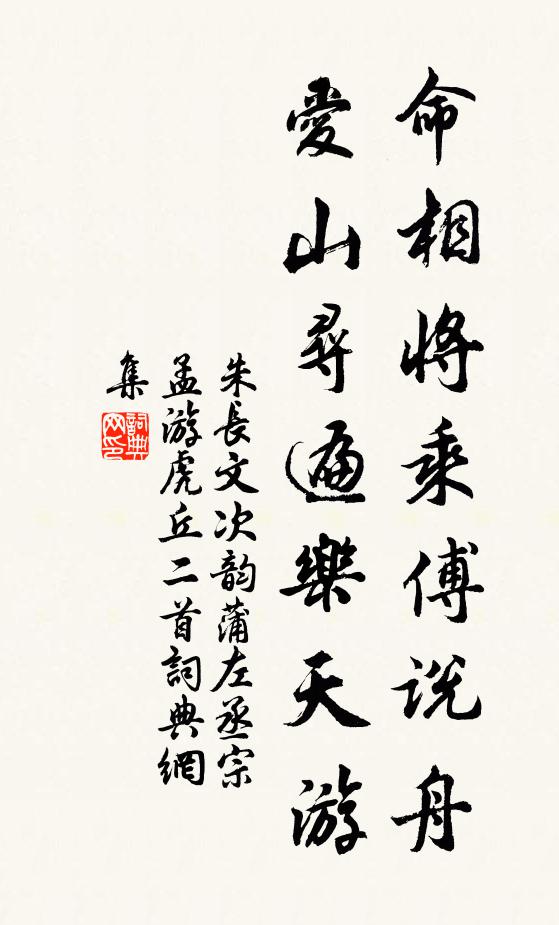 命相將乘傅説舟
愛山尋遍樂天游
朱長文次韵蒲左丞宗
孟游虎丘二首詞典網
集
詞典
网印